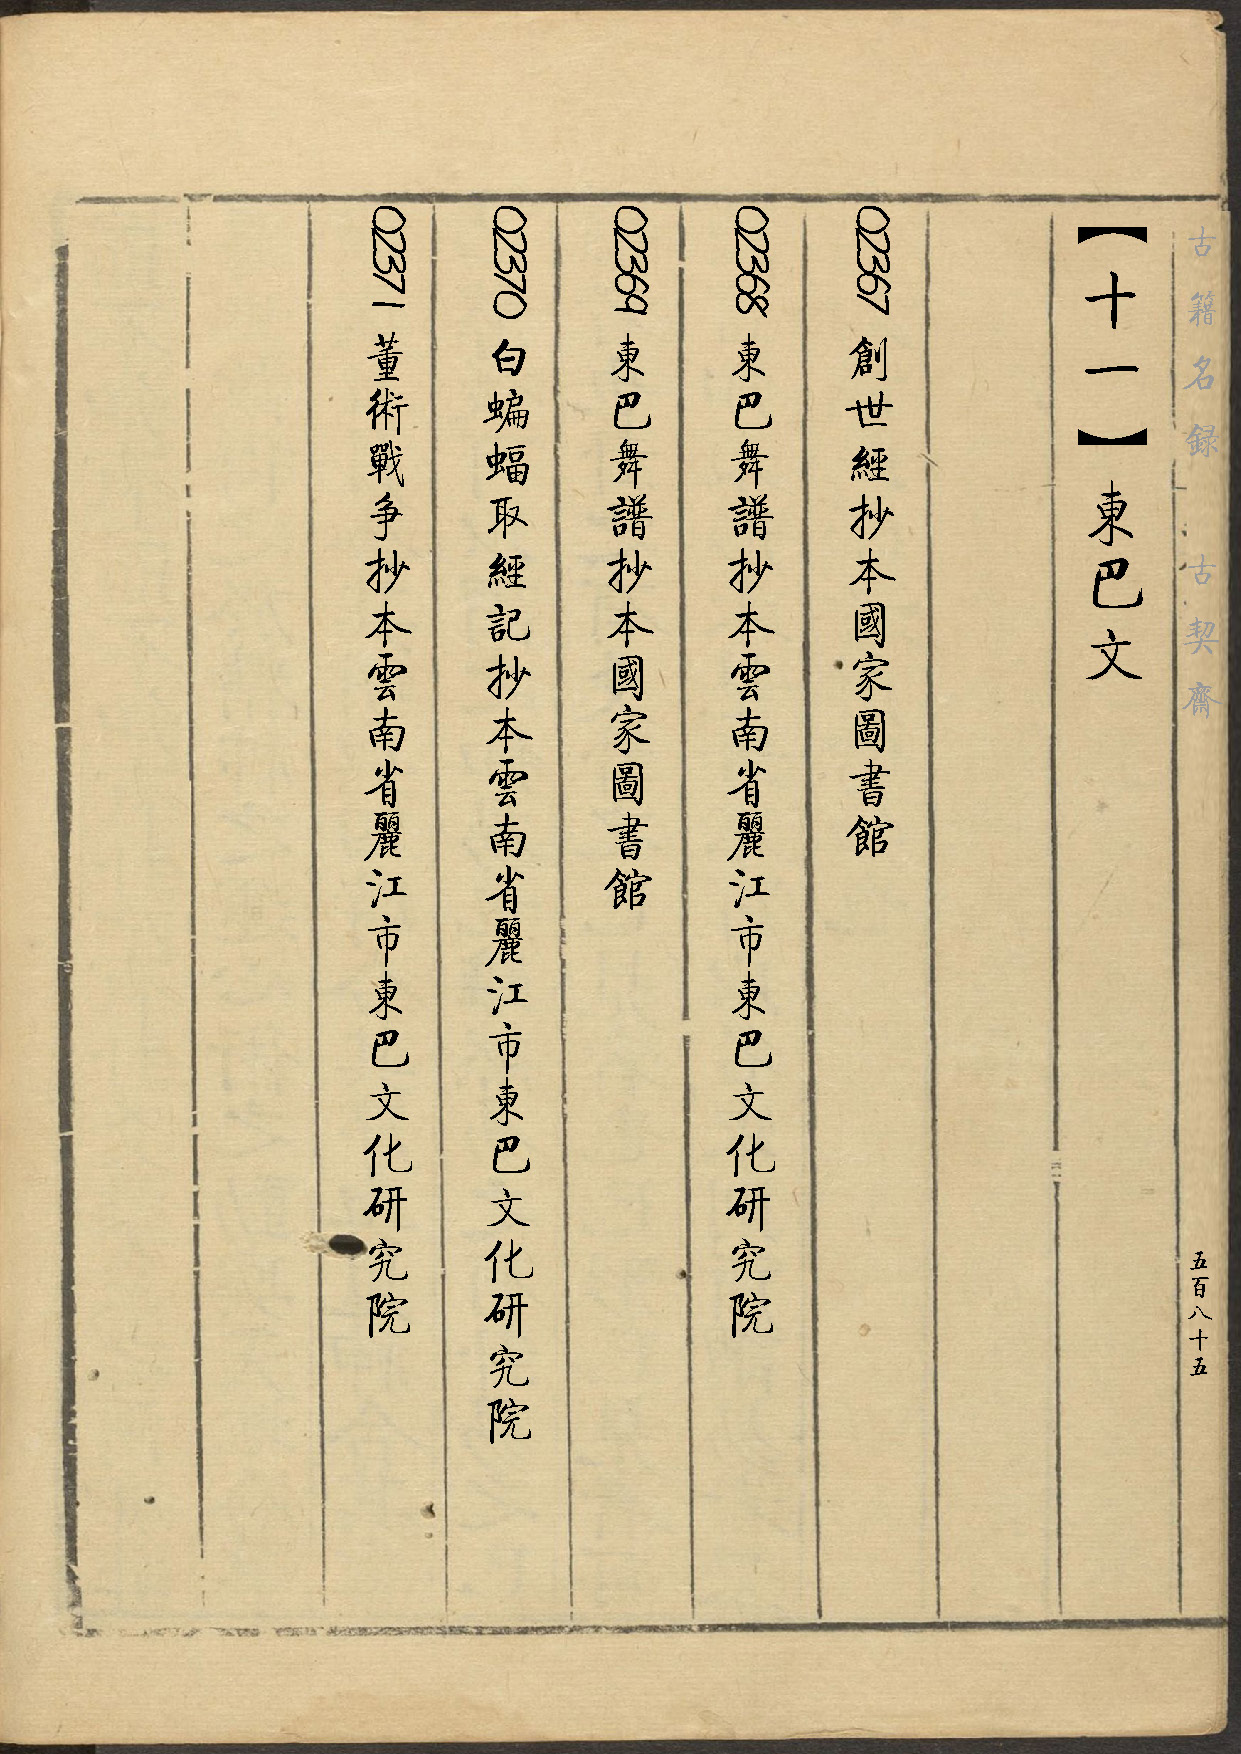 古籍名録 古契齋
五百八十五
【十一】東巴文
02367 創世經抄本國家圖書館
02368 東巴舞譜抄本雲南省麗江市東巴文化研究院
02369 東巴舞譜抄本國家圖書館
02370 白蝙蝠取經記抄本雲南省麗江市東巴文化研究院
02371 董術戰争抄本雲南省麗江市東巴文化研究院